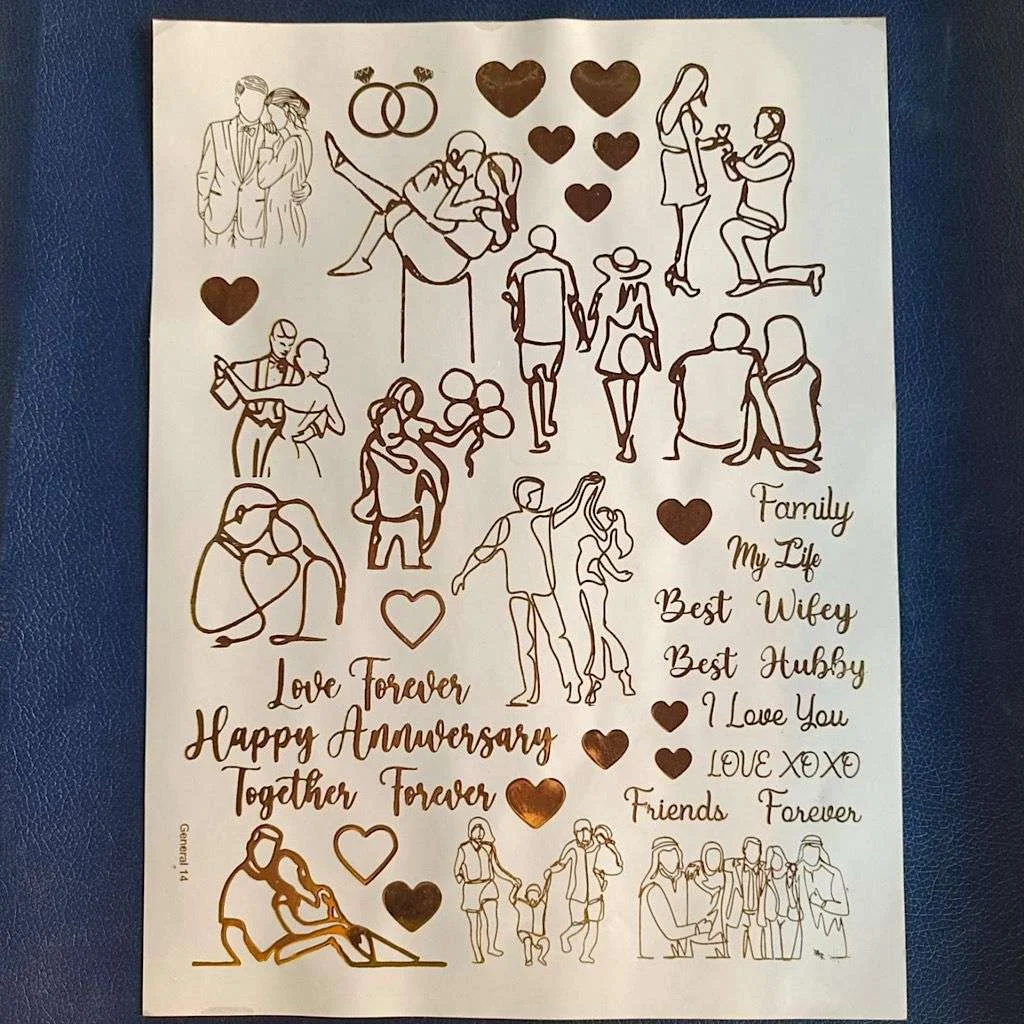 Family
My Life
Best Wifey
Best Hubby
Love Forever
I Love You
Happy Anniversary
LOVE XOXO
Together Forever
Friends Forever
General 14